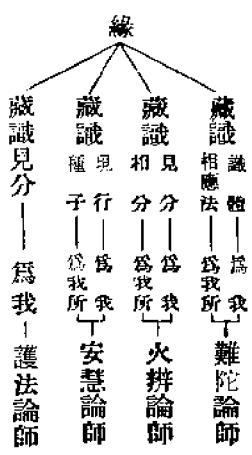 緣
藏識 識體 爲我
相應法 爲我所
難陀論師
藏識 見分 爲我
相分 爲我所
火辨論師
藏識 現行 爲我
種子 爲我所
安慧論師
藏識見分 爲我
護法論師